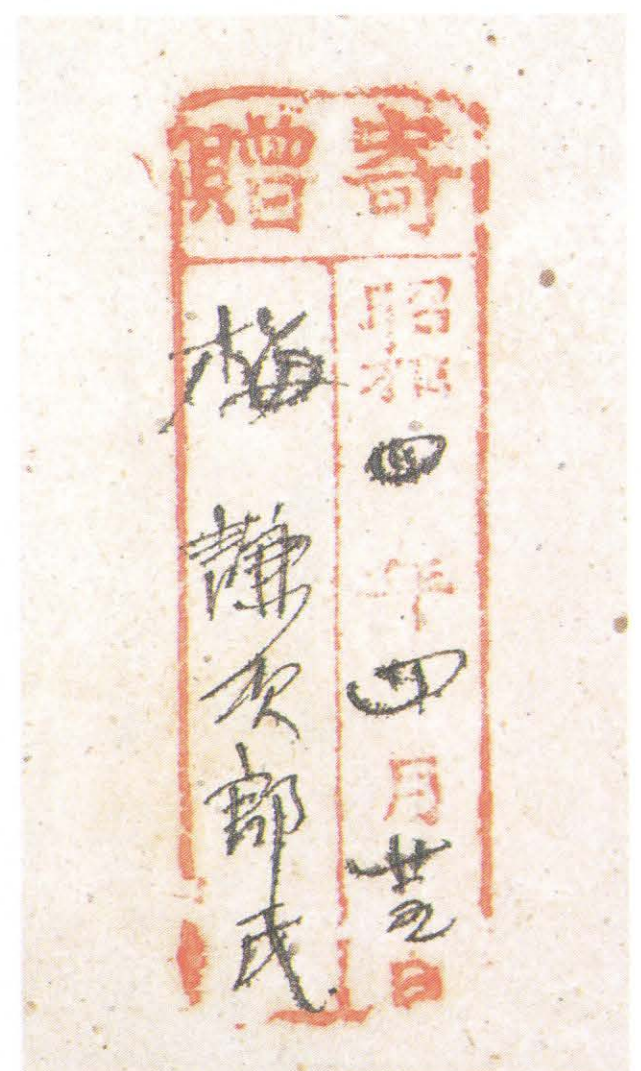 寄贈
昭和四年四月廿五日
梅謙次郎氏